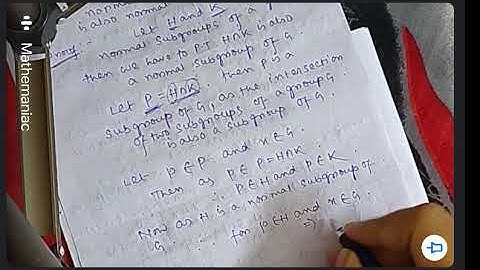 is also normal
Let H and K
Proof normal subgroups of a
then we have to P.T H∩K is also
a normal subgroup of G.
Let P = H∩K, then P is a
subgroup of G, as the intersection
of two subgroups of a group G
is also a subgroup of G.
Let P∈P and x∈G.
Then as P∈P=H∩K
∴ P∈H and P∈K.
Now as H is a normal subgroup of
G. ∴ for P∈H and x∈G.
⇒
Mathemaniac